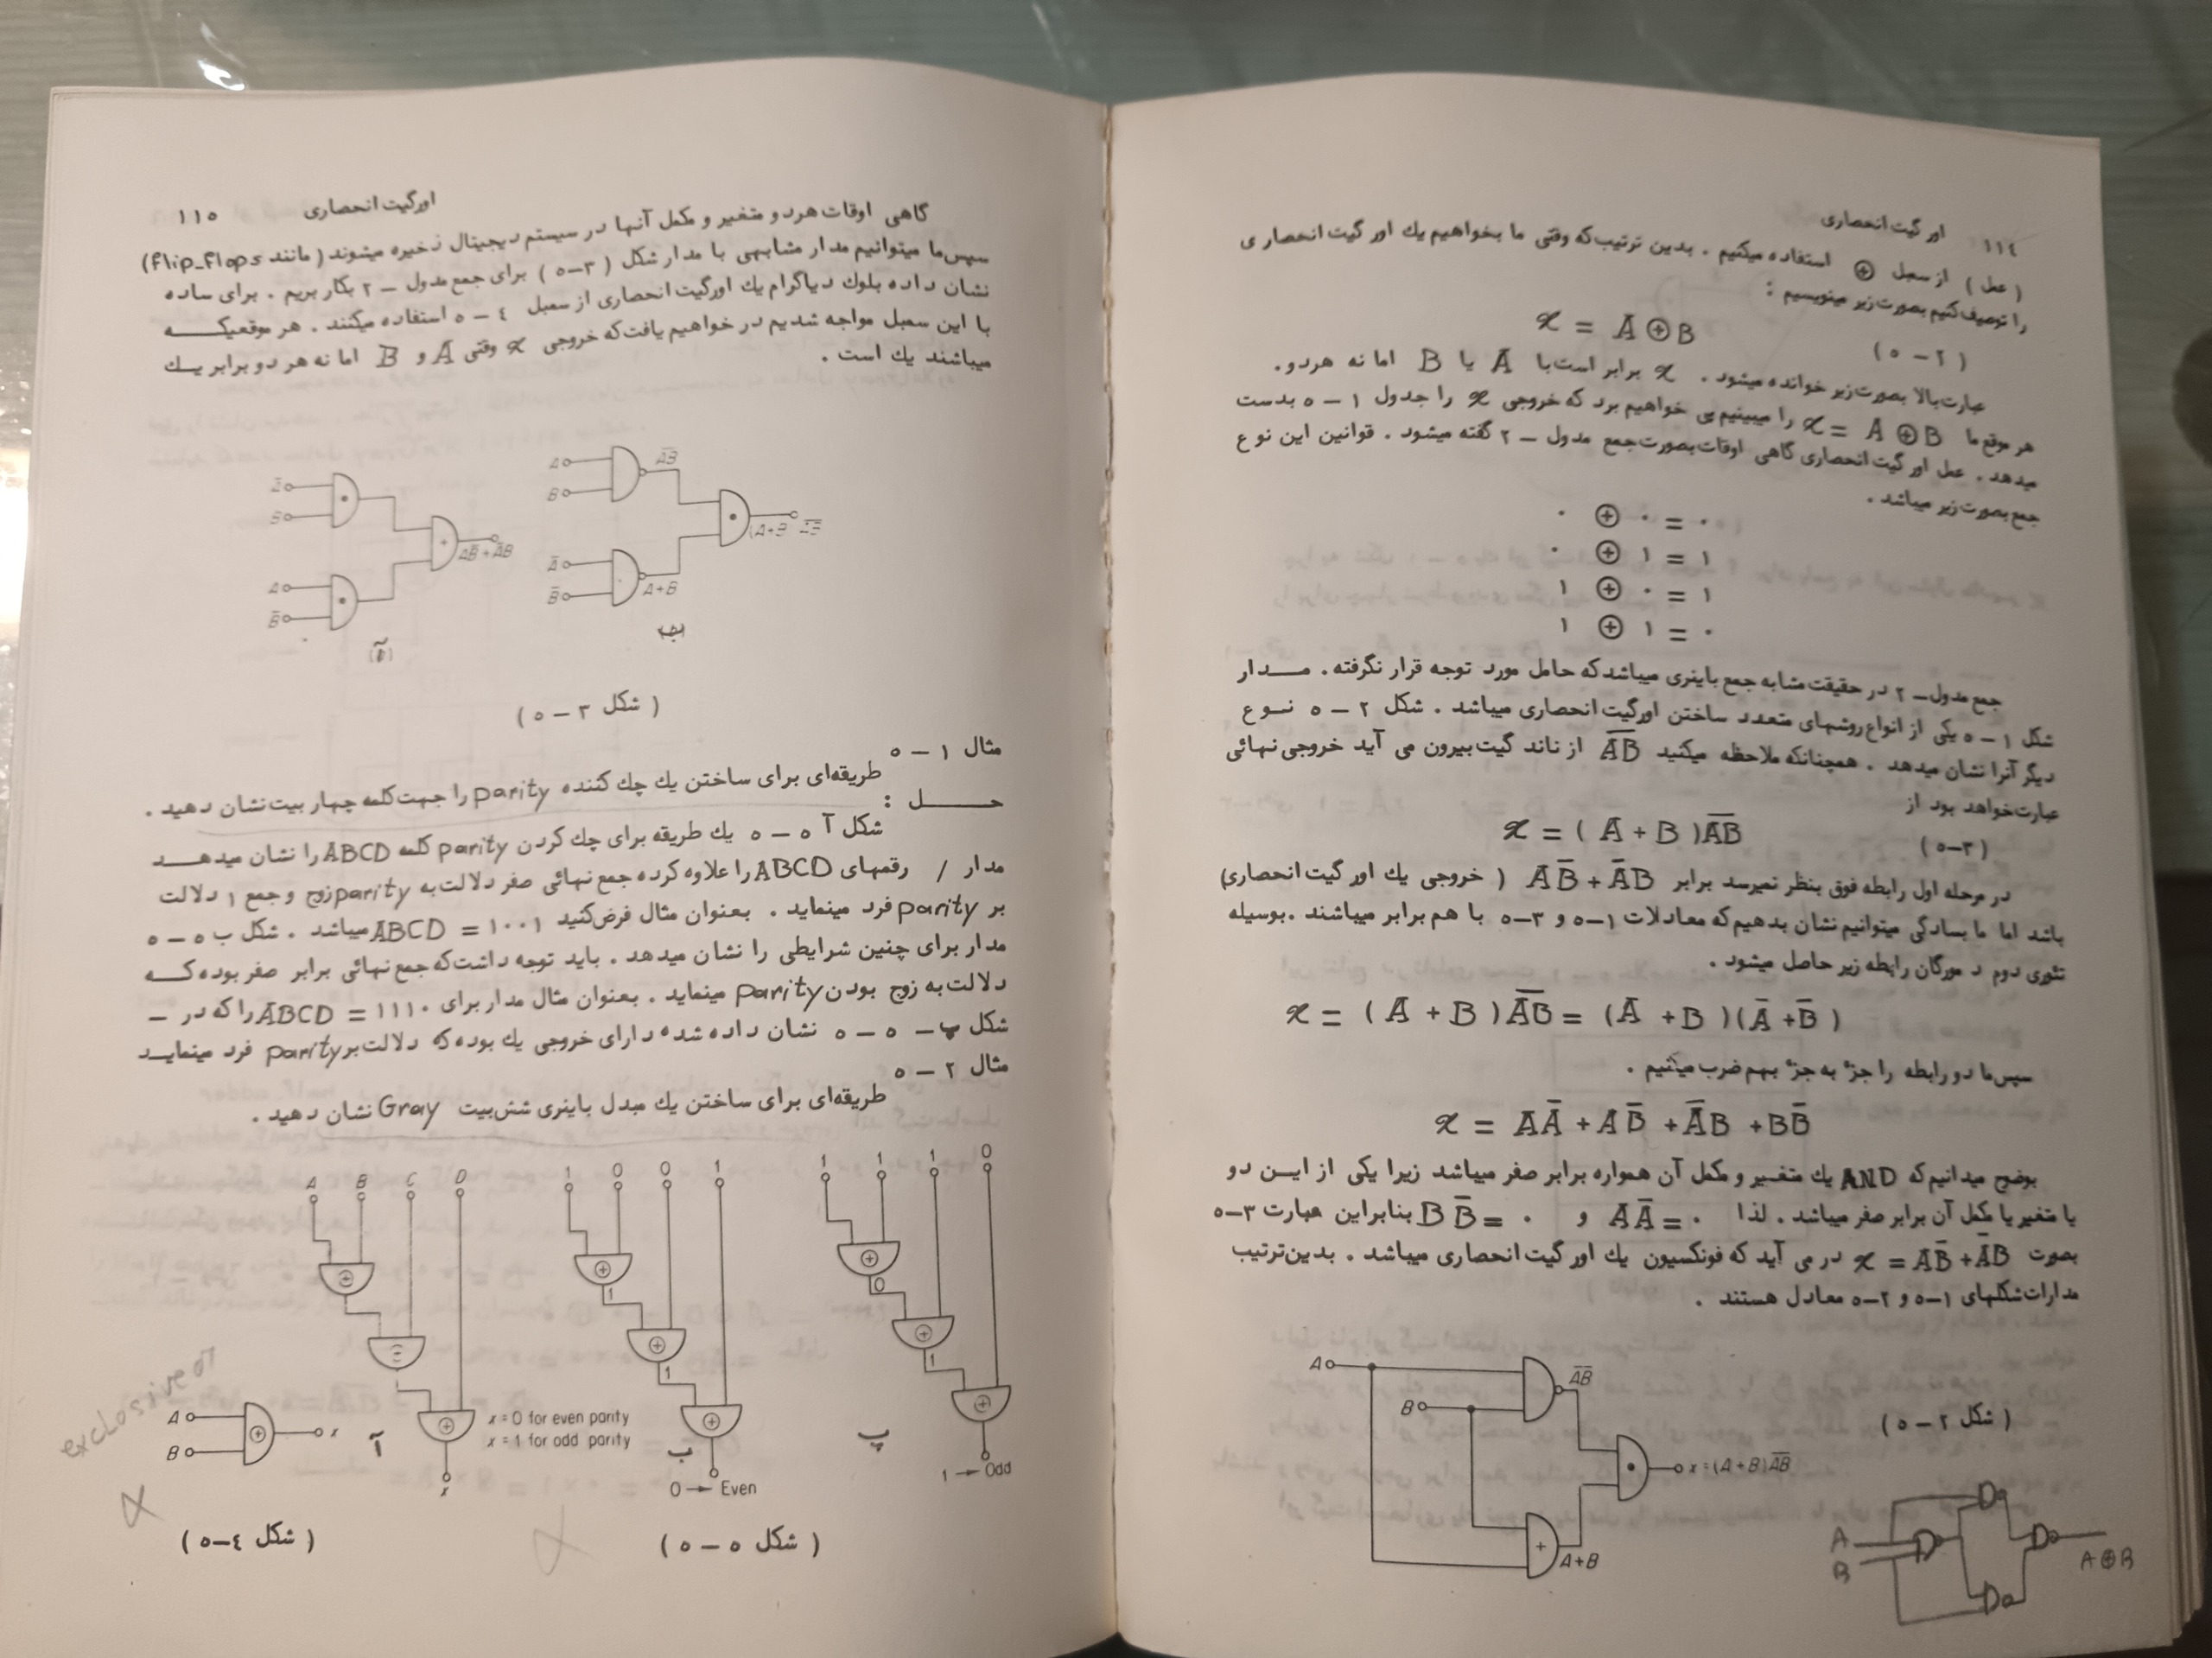 ۱۱٤ اور گیت انحصاری
( عمل ) از سمبل ⊕ استفاده میکنیم . بدین ترتیب که وقتی ما بخواهیم یك اور گیت انحصاری
را توصیف کنیم بصورت زیر مینویسیم :
x = A ⊕ B
( ۵ – ۲ )
عبارت بالا بصورت زیر خوانده میشود . x برابر است با A یا B اما نه هردو .
هر موقع ما x = A ⊕ B را میبینیم پی خواهیم برد که خروجی x را جدول ۱ – ۵ بدست
میدهد . عمل اور گیت انحصاری گاهی اوقات بصورت جمع مدول – ۲ گفته میشود . قوانین این نوع
جمع بصورت زیر میباشد .
۰ ⊕ ۰ = ۰
۰ ⊕ ۱ = ۱
۱ ⊕ ۰ = ۱
۱ ⊕ ۱ = ۰
جمع مدول – ۲ در حقیقت مشابه جمع باینری میباشد که حامل مورد توجه قرار نگرفته . مـــدار
شکل ۱ – ۵ یکی از انواع روشهای متعدد ساختن اورگیت انحصاری میباشد . شکل ۲ – ۵ نـوع
دیگر آنرا نشان میدهد . همچنانکه ملاحظه میکنید A̅B̅ از ناند گیت بیرون می آید خروجی نهائی
عبارت خواهد بود از
x = ( A + B )A̅B̅
( ۵–۳ )
در مرحله اول رابطه فوق بنظر نمیرسد برابر AB̅ + A̅B ( خروجی یك اور گیت انحصاری)
باشد اما ما بسادگی میتوانیم نشان بدهیم که معادلات ۱–۵ و ۳–۵ با هم برابر میباشند . بوسیله
تئوری دوم د مورگان رابطه زیر حاصل میشود .
x = ( A + B )A̅B̅ = (A + B )(A̅ + B̅ )
سپس ما دو رابطه را جزء به جزء بهم ضرب میکنیم .
x = AA̅ + AB̅ + A̅B + BB̅
بوضوح میدانیم که AND یك متغـیر و مکمل آن همواره برابر صفر میباشد زیرا یکی از ایـن دو
یا متغیر یا مکمل آن برابر صفر میباشد . لذا AA̅ = ۰ و BB̅ = ۰ بنابراین عبارت ۳–۵
بصورت x = AB̅ + A̅B در می آید که فونکسیون یك اور گیت انحصاری میباشد . بدین ترتیب
مدارات شکلهای ۱–۵ و ۲–۵ معادل هستند .
A
A̅B̅
B
( شکل ۲ – ۵ )
x = (A + B)A̅B̅
A+B
A
B
A⊕B
اورگیت انحصاری ۱۱۵
گاهی اوقات هردو متغیر و مکمل آنها در سیستم دیجیتال ذخیره میشوند ( مانند flip_flops)
سپس ما میتوانیم مدار مشابهی با مدار شکل ( ۳ – ۵ ) برای جمع مدول – ۲ بکار بریم . برای ساده
نشان داده بلوك دیاگرام یك اورگیت انحصاری از سمبل ٤ – ۵ استفاده میکنند . هر موقعیکـــه
با این سمبل مواجه شدیم در خواهیم یافت که خروجی x وقتی A و B اما نه هر دو برابر یـك
میباشند یك است .
A̅ B A B̅
AB̅ + A̅B
آ
A B A̅ B̅
A̅B̅ A+B
(A+B) A̅B̅
ب
( شکل ۳ – ۵ )
مثال ۱ – ۵
طریقه‌ای برای ساختن یك چك کننده parity را جهت کلمه چهار بیت نشان دهید .
حـــــل :
شکل آ ۵ – ۵ یك طریقه برای چك کردن parity کلمه ABCD را نشان میدهــد
مدار / رقمهای ABCD را علاوه کرده جمع نهائی صفر دلالت به parity زوج و جمع ۱ دلالت
بر parity فرد مینماید . بعنوان مثال فرض کنید ABCD = ۱۰۰۱ میباشد . شکل ب ۵ – ۵
مدار برای چنین شرایطی را نشان میدهد . باید توجه داشت که جمع نهائی برابر صفر بوده کــه
دلالت به زوج بودن parity مینماید . بعنوان مثال مدار برای ABCD = ۱۱۱۰ را که در –
شکل پ – ۵ – ۵ نشان داده شده دارای خروجی یك بوده که دلالت بر parity فرد مینمایـد
مثال ۲ – ۵
طریقه‌ای برای ساختن یك مبدل باینری شش بیت Gray نشان دهید .
A B C D
1 0 0 1
1 1 1 0
1 1
0 1
exclosive or
A
B
x
آ
x = 0 for even parity
x = 1 for odd parity
x
ب
0 → Even
پ
1 → Odd
( شکل ٤–۵ )
( شکل ۵ – ۵ )